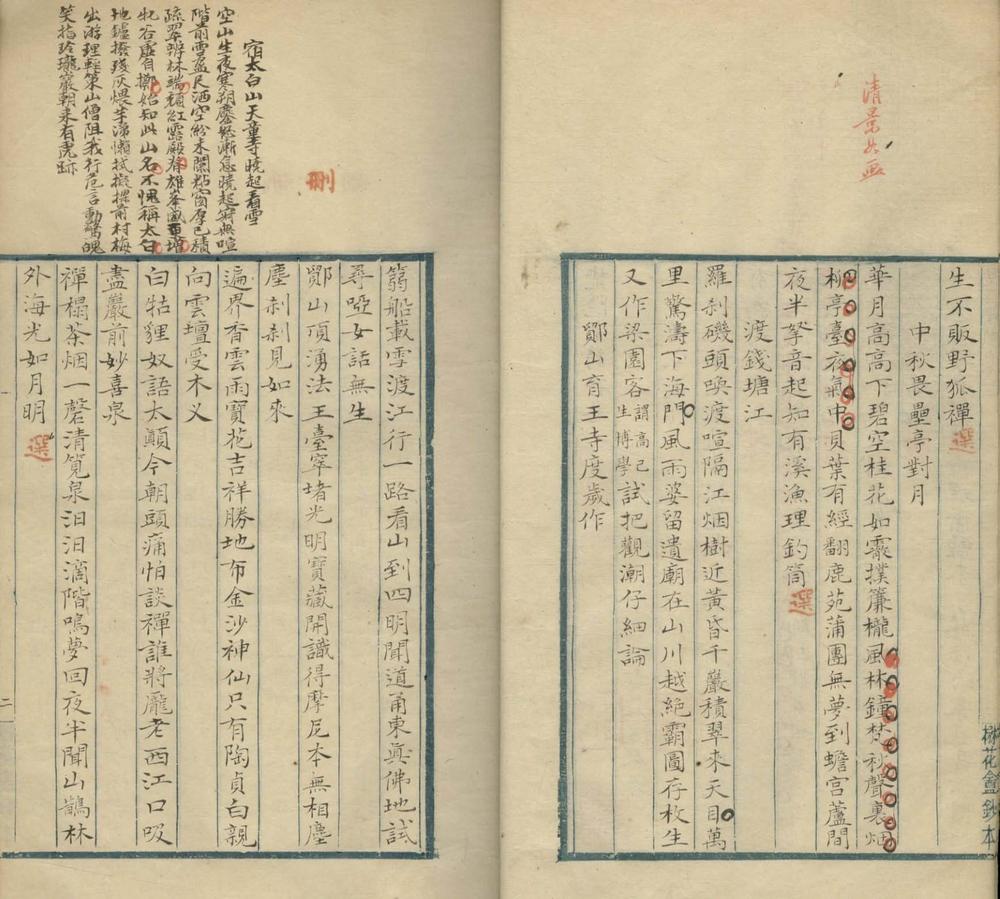 清景如画
生不販野狐禪
選
中秋畏壘亭對月
華月高高下碧空桂花如霰撲簾櫳風林鐘梵秋聲裏烟
柳亭臺夜氣中貝葉有經翻鹿苑蒲團無夢到蟾宮蘆間
夜半拏音起知有溪漁理釣筒
選
渡錢塘江
羅刹磯頭喚渡喧隔江烟樹近黃昏千巖積翠來天目萬
里驚濤下海門風雨婆留遺廟在山川越絕霸圖存枚生
又作梁園客謂高己生博學試把觀潮仔細論
鄮山育王寺度歲作
柳花盦鈔本
宿太白山天童寺曉起看雪
空山生夜寒朔塵愁漸急曉起寂無喧
階前雪盈尺洒空紛未闌粘窗厚已積
疏翠辨林端頹紅露殿脊雄峯咸百增
牝谷虛自擲始知此山名不愧稱太白
地鑪撥殘灰煨芋涕懶拭擬探前村梅
出游理輕策山僧阻我行危言動驚魄
笑指玲瓏巖朝来有虎跡
刪
篛船載雪渡江行一路看山到四明聞道甬東真佛地試
尋啞女話無生
鄮山頂湧法王臺窣堵光明寶藏開識得摩尼本無相塵
塵剎剎見如來
遍界香雲雨寶花吉祥勝地布金沙神仙只有陶貞白親
向雲壇受木义
白牯貍奴語太顛今朝頭痛怕談禪誰將龐老西江口吸
盡巖前妙喜泉
禪榻茶烟一磬清筧泉汩汩滴階鳴夢回夜半聞山鵲林
外海光如月明
選
二